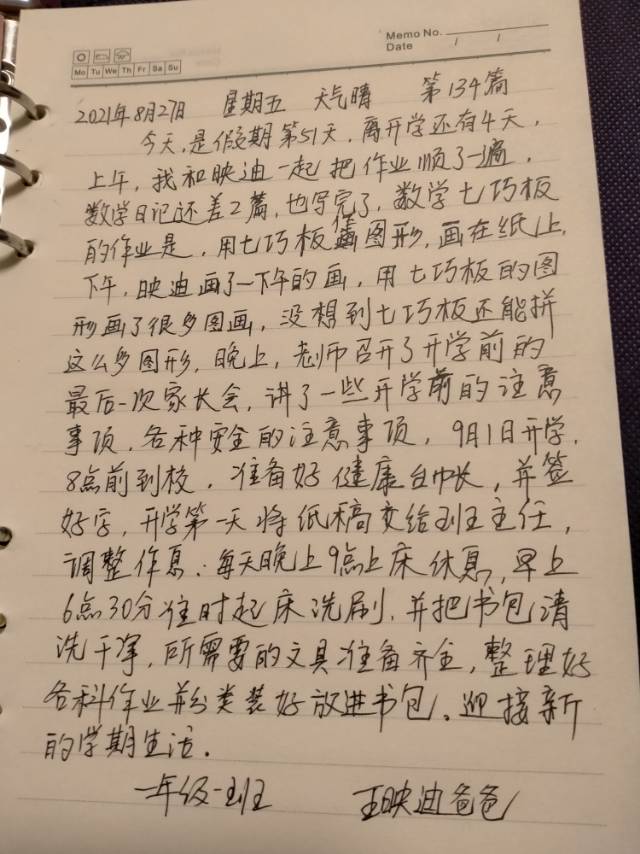 Memo No.
Date / /
Mo Tu We Th Fr Sa Su
2021年8月27日 星期五 天气晴 第134篇
今天,是假期第51天,离开学还有4天,
上午,我和映迪一起把作业顺了一遍,
数学日记还差2篇,也写完了,数学七巧板
的作业是,用七巧板做图形,画在纸上,
下午,映迪画了一下午的画,用七巧板的图
形画了很多图画,没想到七巧板还能拼
这么多图形,晚上,老师召开了开学前的
最后一次家长会,讲了一些开学前的注意
事项,各种安全的注意事项,9月1日开学,
8点前到校,准备好健康台帐,并签
好字,开学第一天将纸稿交给班主任,
调整作息:每天晚上9点上床休息,早上
6点30分准时起床洗刷,并把书包清
洗干净,所需要的文具准备齐全,整理好
各科作业并分类装好放进书包。迎接新
的学期生活.
一年级一班 王映迪爸爸